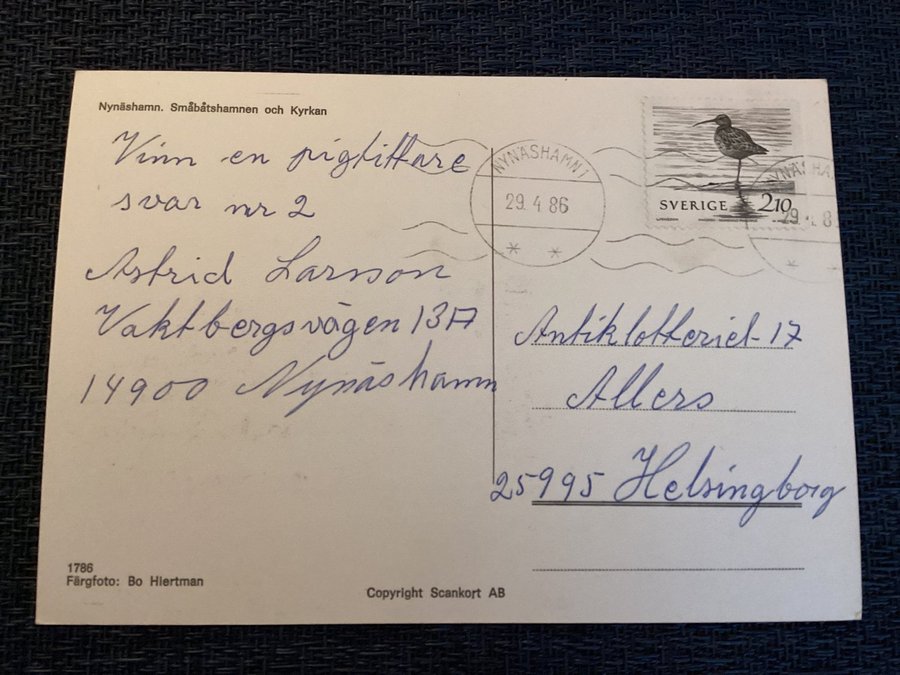 Nynäshamn. Småbåtshamnen och Kyrkan
Vinn en pigtittare
svar nr 2
Astrid Larsson
Vaktbergsvägen 13A
14900 Nynäshamn
1786
Färgfoto: Bo Hiertman
Copyright Scankort AB
NYNÄSHAMN 1
29. 4 86
SVERIGE 210
NYNÄSHA
29 4. 8
Antiklotteriet 17
Allers
25995 Helsingborg